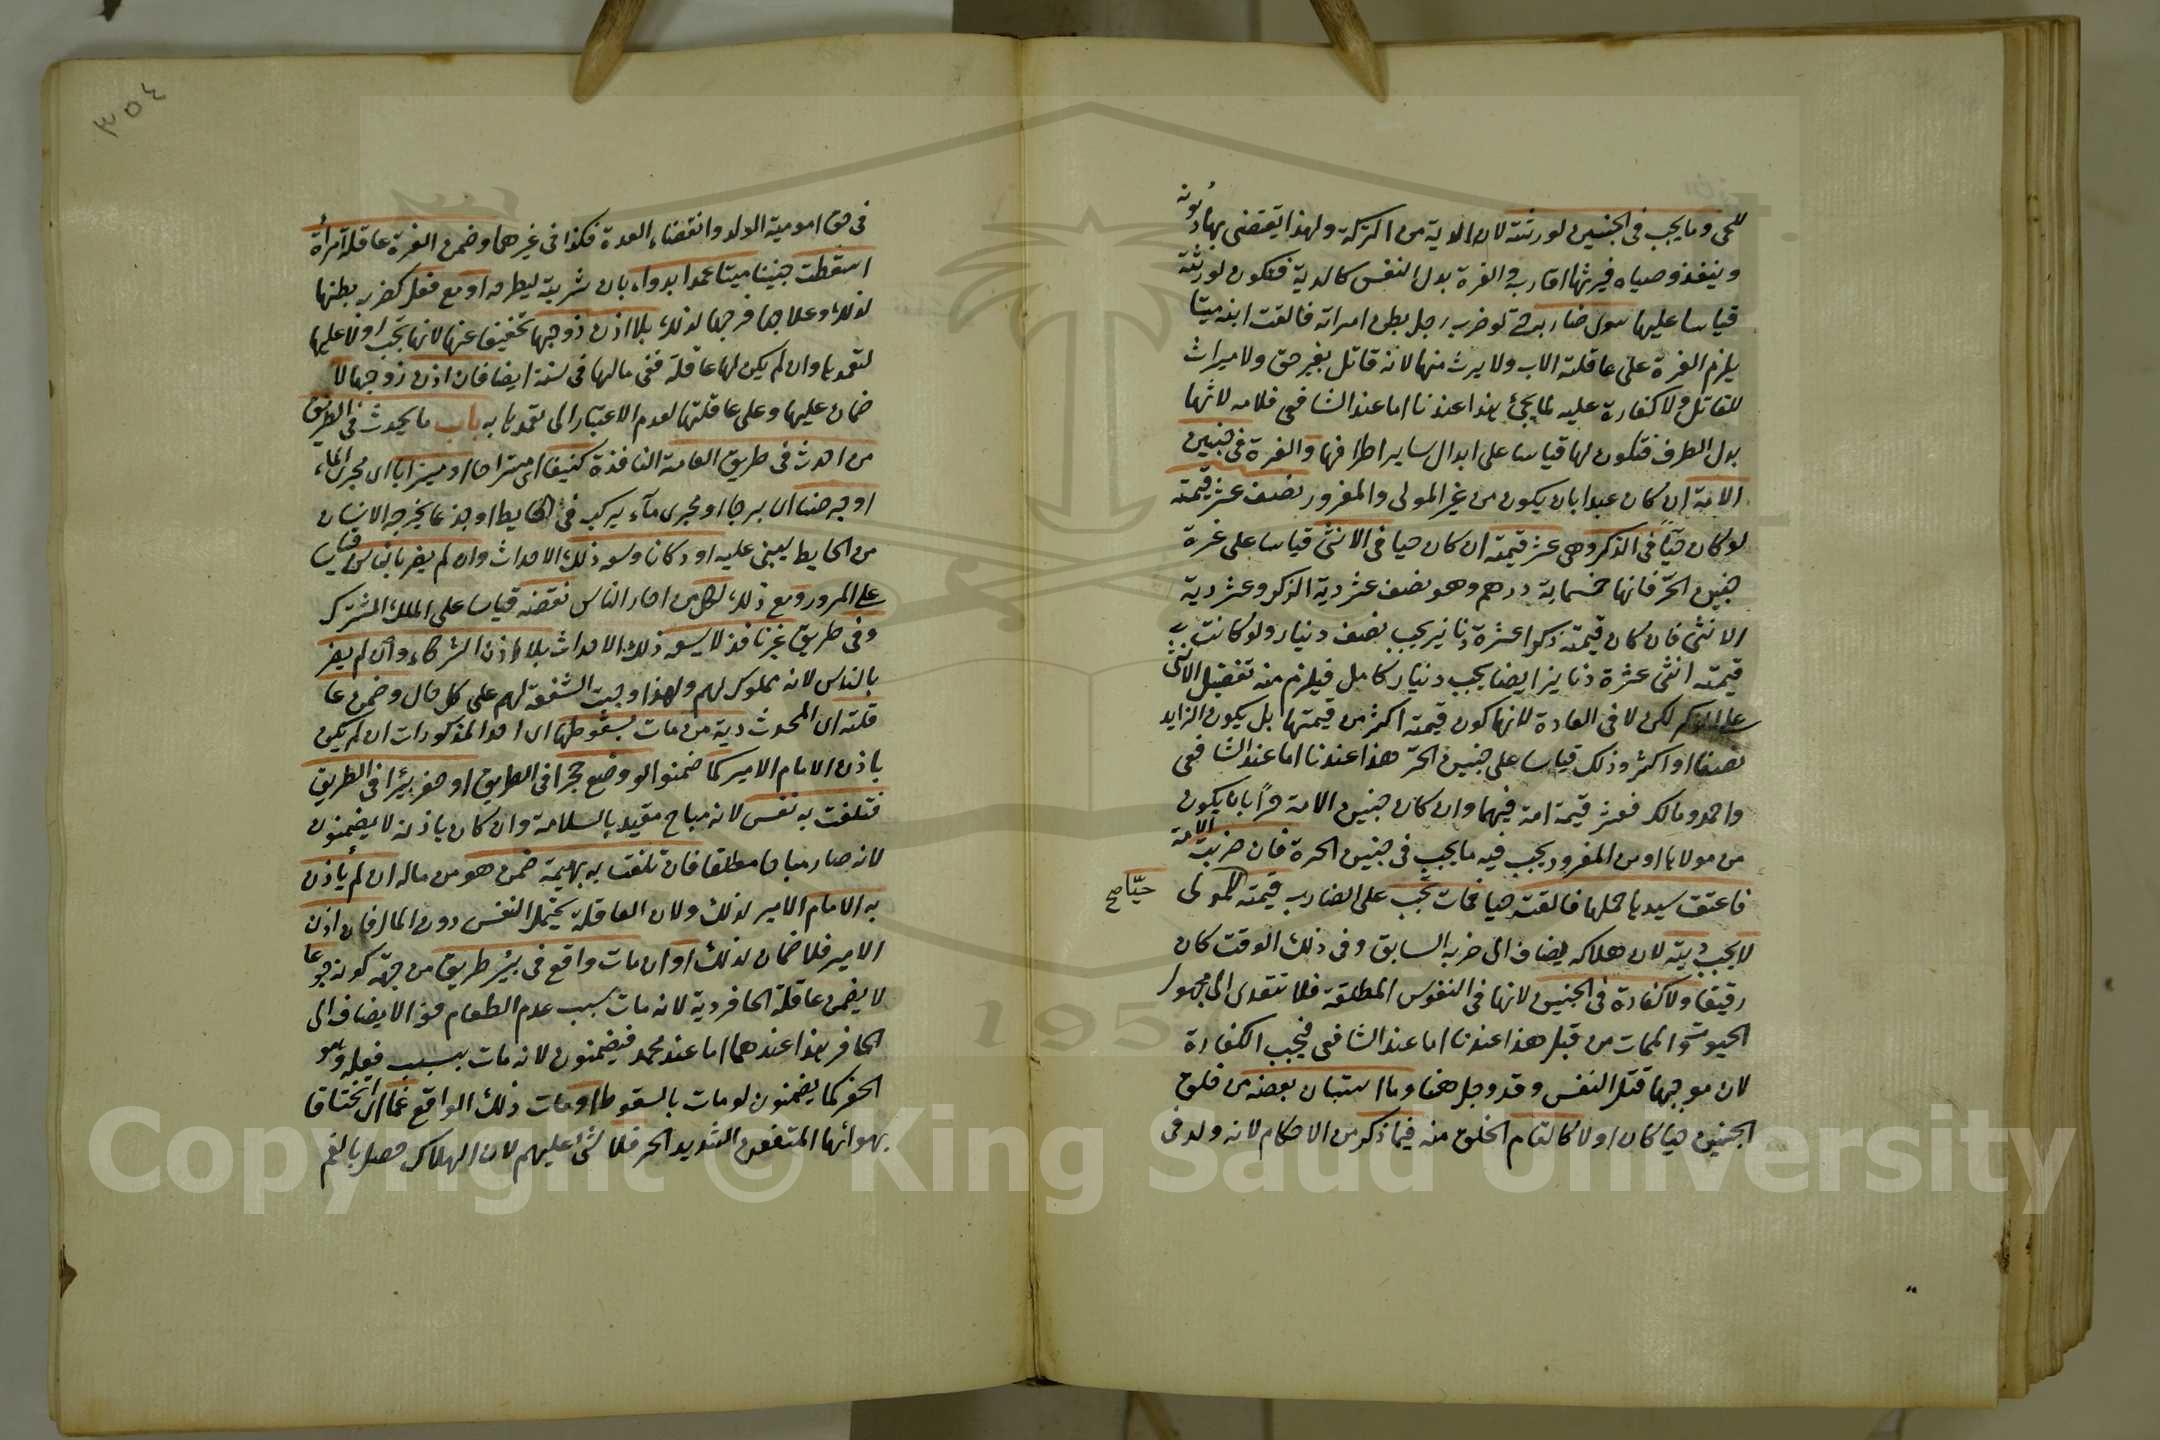 للحى وما يجب فى الجنين لورثته لان الدية من التركة ولهذا يقضى بها ديونه
وينفذ وصياه فيرثها اقاربه والغرة بدل النفس كالدية فتكون لورثته
قياسا عليها سوى ضاربه حتى لو ضرب رجل بطن امراته فالقت ابنه ميتا
يلزم الغرة على عاقلته الاب ولا يرث منها لانه قاتل بغير حق ولا ميراث
للقاتل ولا كفارة عليه لما يجئ هذا عندنا اما عند الشافعى فلامه لانها
بدل الطرف فتكون لها قياسا على ابدال ساير اطرافها والغرة فى جنين
الامة ان كان عبدا بان يكون من غير المولى والمغرور نصف عشر قيمته
لو كان حيّاً فى الذكر وهى عشر قيمته ان كان حيا فى الانثى قياسا على غرة
جنين الحرّ فانها خمسماية درهم وهو نصف عشر دية الذكر وعشر دية
الانثى فان كان قيمته ذكرا عشرة دنانير يجب نصف دنيار ولو كانت
قيمته انثى عشرة دنانيرا ايضا يجب دنيار كامل فيلزم منه تفضيل الانثى
على الذكر لكن لا فى العادة لانها كون قيمته اكثر من قيمتها بل يكون الزايد
نصفا او اكثر وذلك قياسا على جنين الحرّ هذا عندنا اما عند الشافعى
واحمد ومالك فعشر قيمة امة فيهما وان كان جنين الامة حرّاً بان يكون
من مولاها او من المغرور يجب فيه ما يجب فى جنين الحرة فان ضربت الامة
فاعتق سيدها حملها فالقته حيا فمات تجب على الضارب قيمته للمولى
حيّا صح
لا يجب ديته لان هلاكه يضاف الى ضربه السابق وفى ذلك الوقت كان
رقيقا ولا كفارة فى الجنين لانها فى النفوس المطلقة فلا تتعدى الى مجهول
الحيوة والممات من قبل هذا عندنا اما عند الشافعى فيجب الكفارة
لان موجبها قتل النفس وقد وجد هنا وما استبان بعضه من خلق
الجنين حيا كان او لا كالتام الخلق منه فيما ذكر من الاحكام لانه ولد فى
٣٥٤
فى حق امومية الولد وانقضاء العدة فكذا فى غيرهما وضمن الغرة عاقلة امرأة
اسقطت جنينا ميتا عمدا بدواء بان شربته ليطرحه او مع فعل كضرب بطنها
لذلك وعلاجها فرجها لذلك بلا اذن زوجها تخفيفا عنها لانها تجب اولا عليها
لتعمدها وان لم يكن لها عاقلة ففى مالها فى سنة ايضا فان اذن زوجها لا
ضمان عليها وعلى عاقلتها لعدم الاعتبار الى تعمدها به باب ما يحدث فى الطريق
من احدث فى طريق العامة النافذة كنيفا اى مستراحا او ميزابا اى مجرى الماء
او جرصنا اى برجا او مجرى ماء يركب فى الحايط او جذعا يخرجه الانسان
من الحايط ليبنى عليه او دكانا وسعه ذلك الاحداث وان لم يضر بالناس قياسا
على المرور ومع ذلك لكل من احاد الناس نقضه قياسا على الملك المشترك
وفى طريق غير نافذ لا يسعه ذلك الاحداث بلا اذن الشركاء وان لم يضر
بالناس لانه مملوك لهم ولهذا وجبت الشفعة لهم على كل حال وضمن عا
قلته اى المحدث دية من مات بسقوطها اى احد المذكورات ان لم يكن
باذن الامام الامير كما ضمنوا لو وضع حجرا فى الطريق او حفر بئرا فى الطريق
فتلفت به نفس لانه مباح مقيد بالسلامة وان كان باذنه لا يضمنون
لانه صار مباحا مطلقا فان تلفت به بهيمة ضمن هو من ماله ان لم يأذن
به الامام الامير لذلك ولان العاقلة يتحمل النفس دون المال فان اذن
الامير فلا ضمان لذلك او ان مات واقع فى بئر طريق من جهة كونه جوعا
لا يضمن عاقلة الحافر دية لانه مات بسبب عدم الطعام فح لا يضاف الى
الحافر هذا عندهما اما عند محمد فيضمنون لانه مات بسبب فعله وهو
الحفر كما يضمنون لو مات بالسقوط او مات ذلك الواقع غما اى اختناقا
بهوائها المتعفن الشديد الحر فلا شئ عليهم لان الهلاك حصل بالغم
Copyright © King Saud University
195